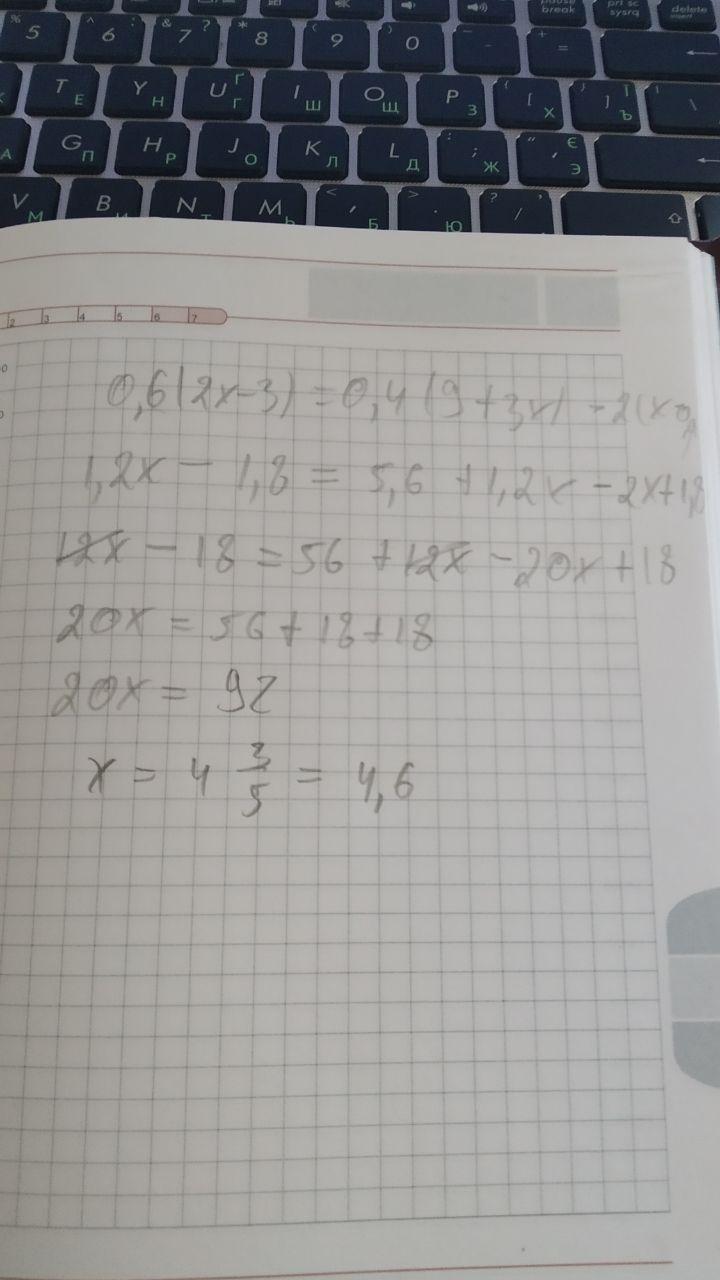 % 5 ^ 6 : & 7 ? * 8 ( 9 ) 0 _ - + =
pause break prt sc sysrq delete
T Е Y Н U Г Ґ I Ш O Щ P З { [ Х } ] Ї Ъ | \
А G П H Р J О K Л L Д : ; Ж " ' Є Э
V М B N M < , Б > . Ю ? /
2 3 4 5 6 7
0,6(2x-3) = 0,4(9+3x) - 2(x
1,2x - 1,8 = 5,6 + 1,2x - 2x + 1,8
12x - 18 = 56 + 12x - 20x + 18
20x = 56 + 18 + 18
20x = 92
x = 4 3/5 = 4,6